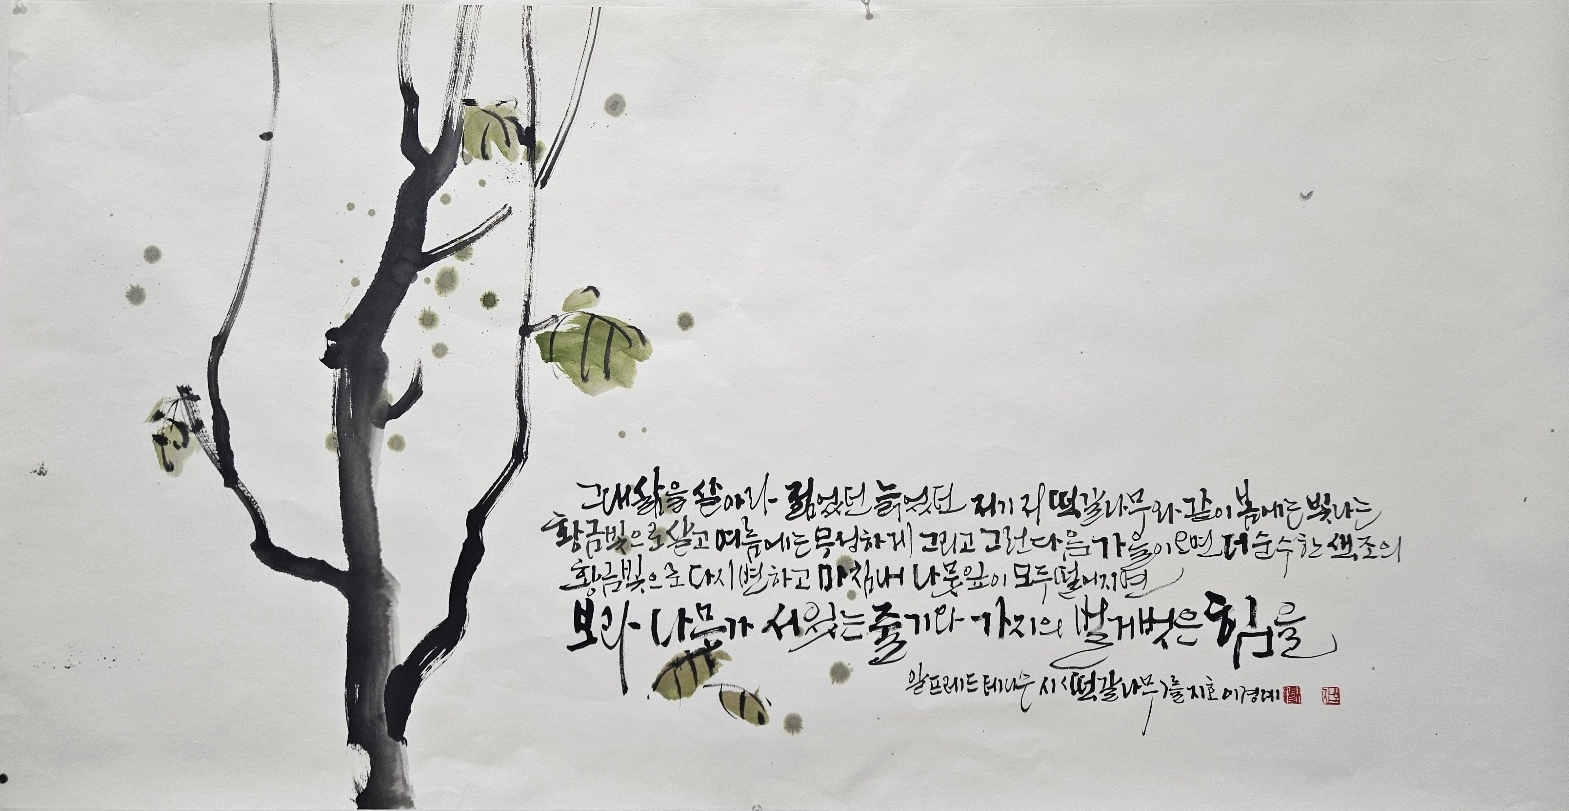 그대 삶을 살아라 젊었던 늙었던 저기 저 떡갈나무와 같이 봄에는 빛나는
황금빛으로 살고 여름에는 무성하게 그리고 그런다음 가을이 오면 더 순수한 색조의
황금빛으로 다시 변하고 마침내 나뭇잎이 모두 떨어지면
보라 나무가 서있는 줄기와 가지의 벌거벗은 힘을
알프레드 테니슨 시 떡갈나무를 지호 이경례